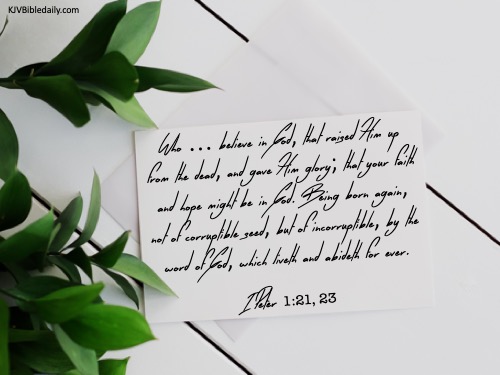 KJVBibledaily.com
Who ... believe in God, that raised Him up
from the dead, and gave Him glory; that your faith
and hope might be in God. Being born again,
not of corruptible seed, but of incorruptible, by the
word of God, which liveth and abideth for ever.
I Peter 1:21, 23